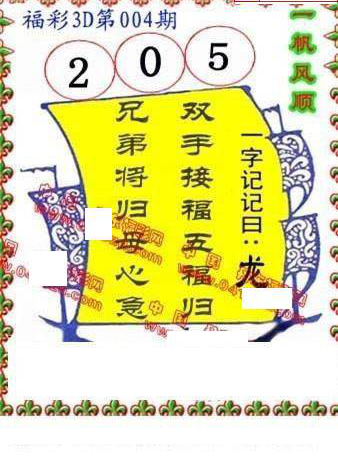 福彩3D第004期
一帆风顺
2 0 5
双手接福五福归
兄弟将归母心急
一字记记曰：龙